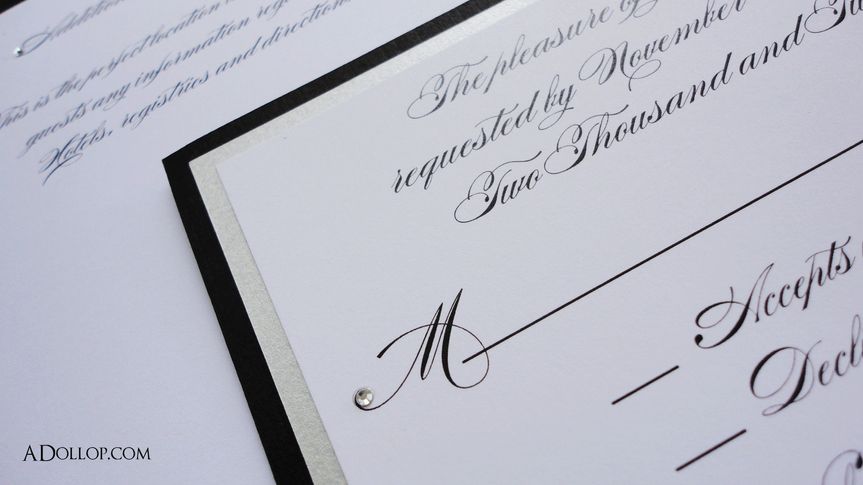 Addition
This is the perfect location
guests any information reg
Hotels, registries and directions
The pleasure of
requested by November
Two Thousand and Tw
M
Accepts
Decl
ADOLLOP.COM